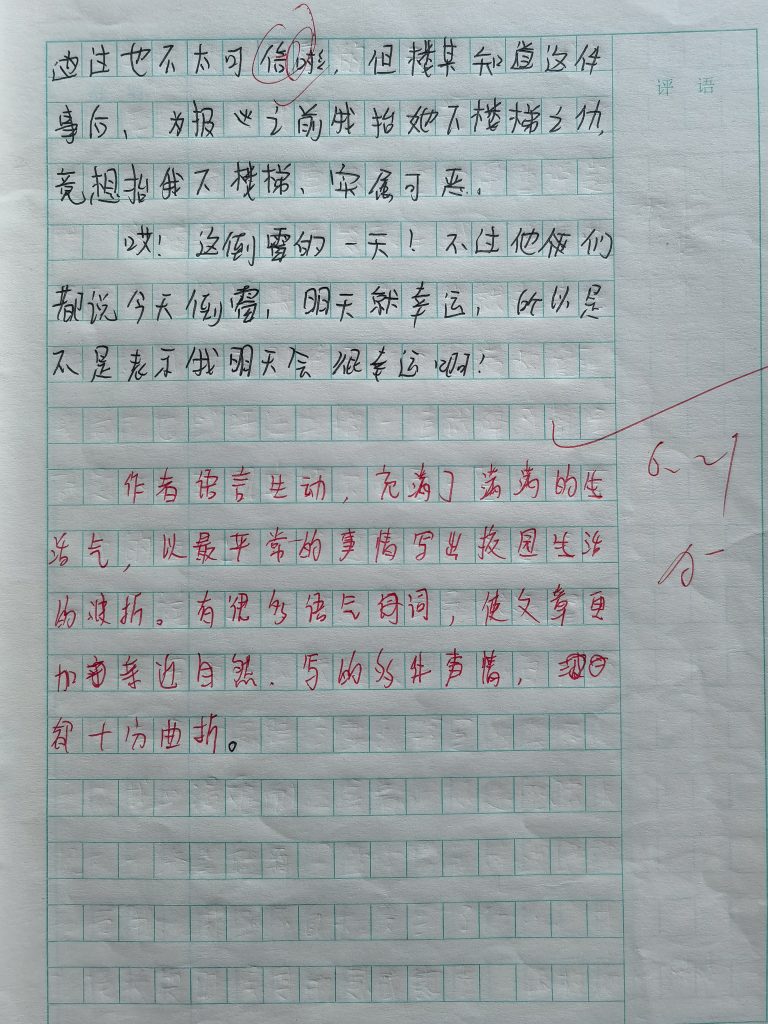 过往也不太可信啦，但楼某知道这件
评语
事后、为报 之前我抬她下楼梯之仇，
竟想抬我下楼梯、实属可恶．
哎！这倒霉的一天！不过他俩们
都说今天倒霉，明天就幸运，所以是
不是表示我明天会很幸运啊！
作者语言生动，充满了满满的生
活气，以最平常的事情写出校园生活
的波折。有很多语气词，使文章更
加亲近自然．写的多件事情，
都十分曲折。